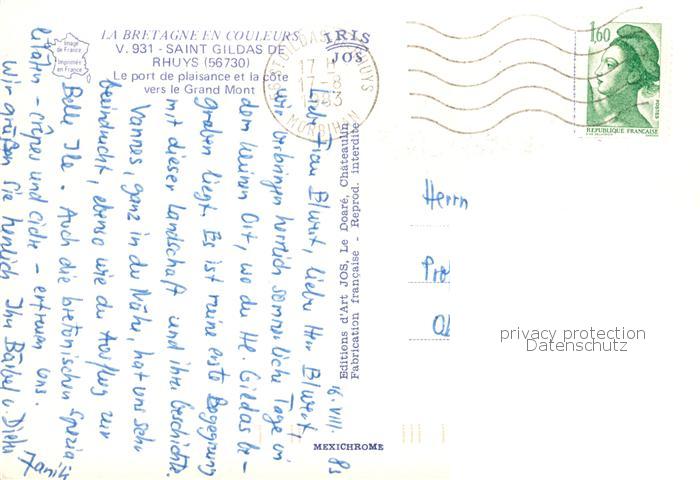 LA BRETAGNE EN COULEURS
V. 931 - SAINT GILDAS DE
RHUYS (56730)
Le port de plaisance et la côte
vers le Grand Mont
Image
de France
Imprimée
en France
IRIS
JOS
ST-GILDAS RHUYS
17 H
17-8
1983
MORBIHAN
1,60
POSTES
REPUBLIQUE FRANÇAISE
16. VIII. 83
Liebe Frau Blunt, lieber Herr Blunt
wir verbringen herrlich sommerliche Tage in
dem kleinen Ort, wo der Hl. Gildas be-
graben liegt. Es ist meine erste Begegnung
mit dieser Landschaft und ihrer Geschichte.
Vannes, ganz in der Nähe, hat uns sehr
beeindruckt, ebenso wie der Ausflug zur
Belle Ile. Auch die bretonischen Spezia-
litäten - crêpes und cidre - erfreuen uns.
Wir grüßen Sie herzlich Ihr Bärbel u. Dieter
Editions d'Art JOS, Le Doaré, Châteaulin
Fabrication française - Reprod. interdite
MEXICHROME
Herrn
Pro
privacy protection
Datenschutz